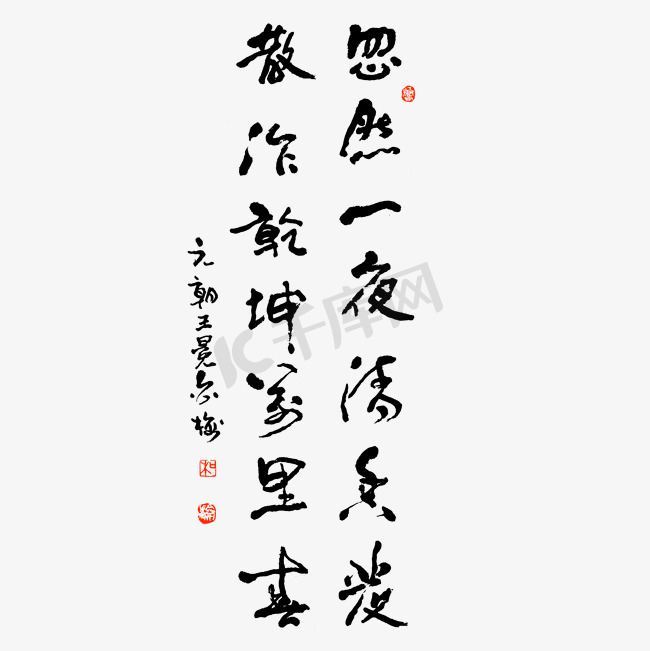 忽然一夜清香發
散作乾坤萬里春
元朝王冕白梅
千库网